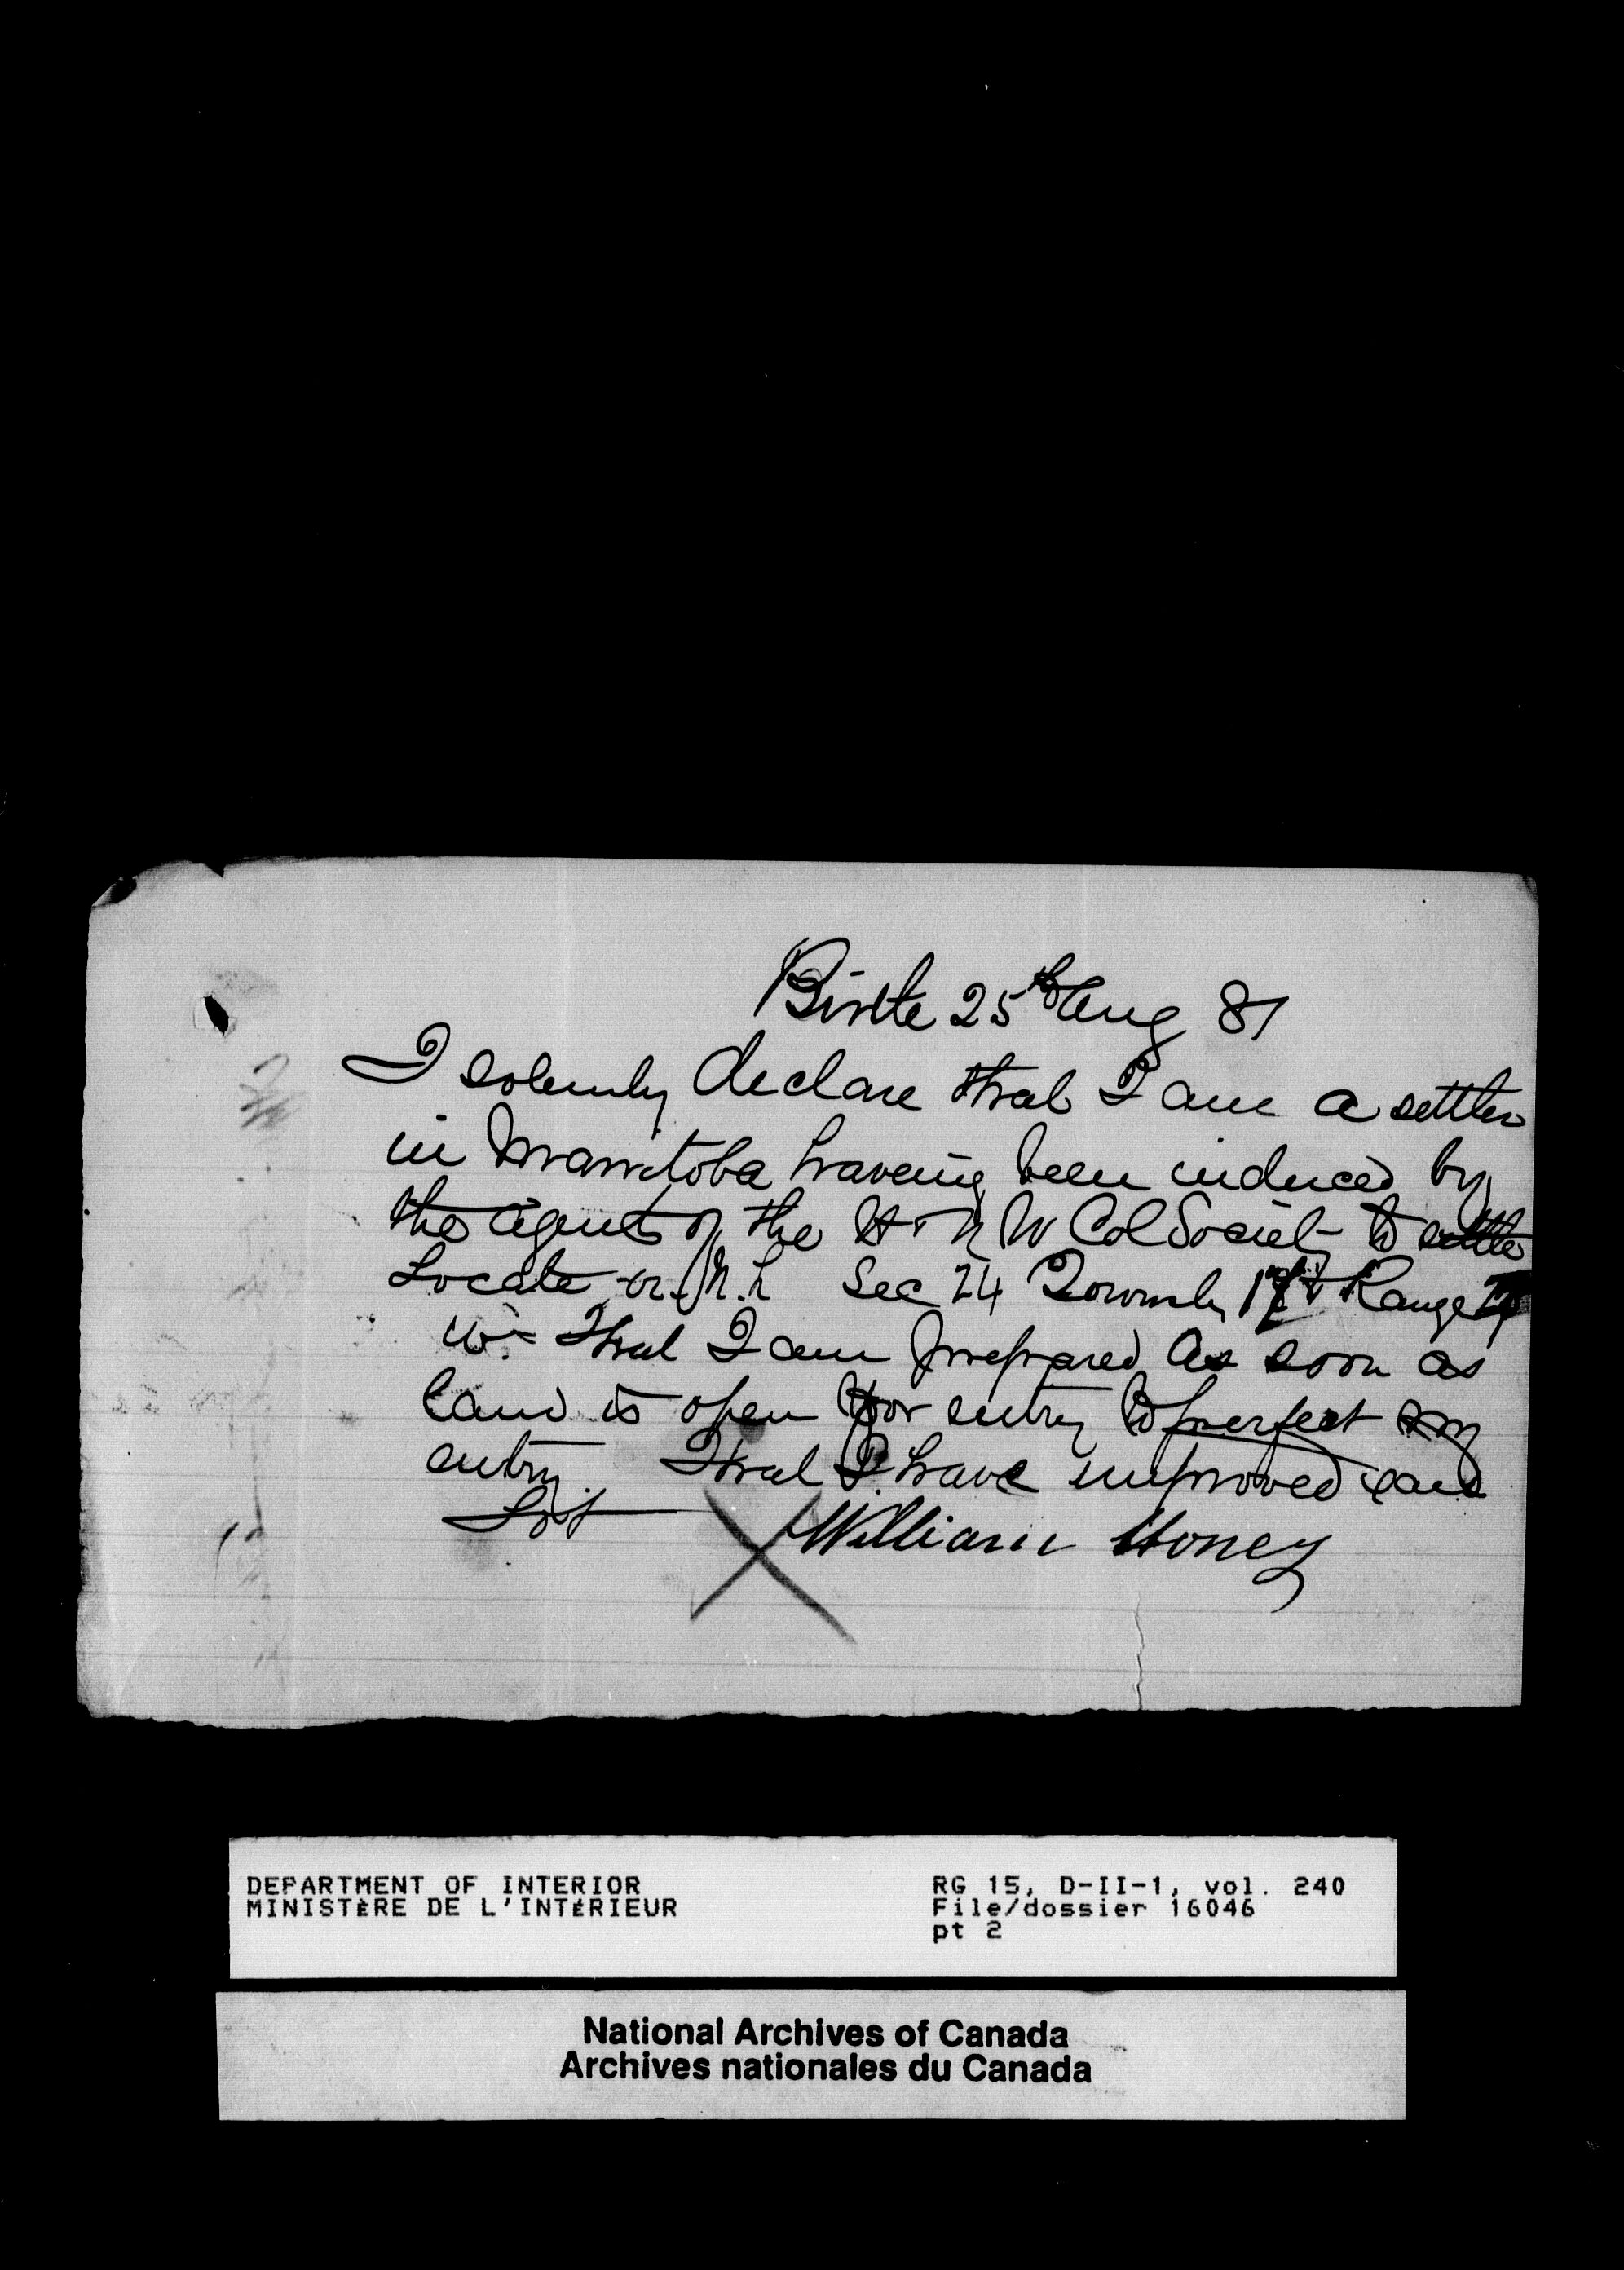 Birtle 25th Aug 81
I solemnly declare that I am a settler
in Manitoba haveing been induced by
the agents of the H & N W Col Society to settle
Locate on N.h Sec 24 Township 17 Range 27
w. That I am prepared as soon as
land is open for entry to perfect my
entry That I have improved said
Lot
William Honey
DEPARTMENT OF INTERIOR
MINISTÈRE DE L'INTÉRIEUR
RG 15, D-II-1, vol. 240
File/dossier 16046
pt 2
National Archives of Canada
Archives nationales du Canada